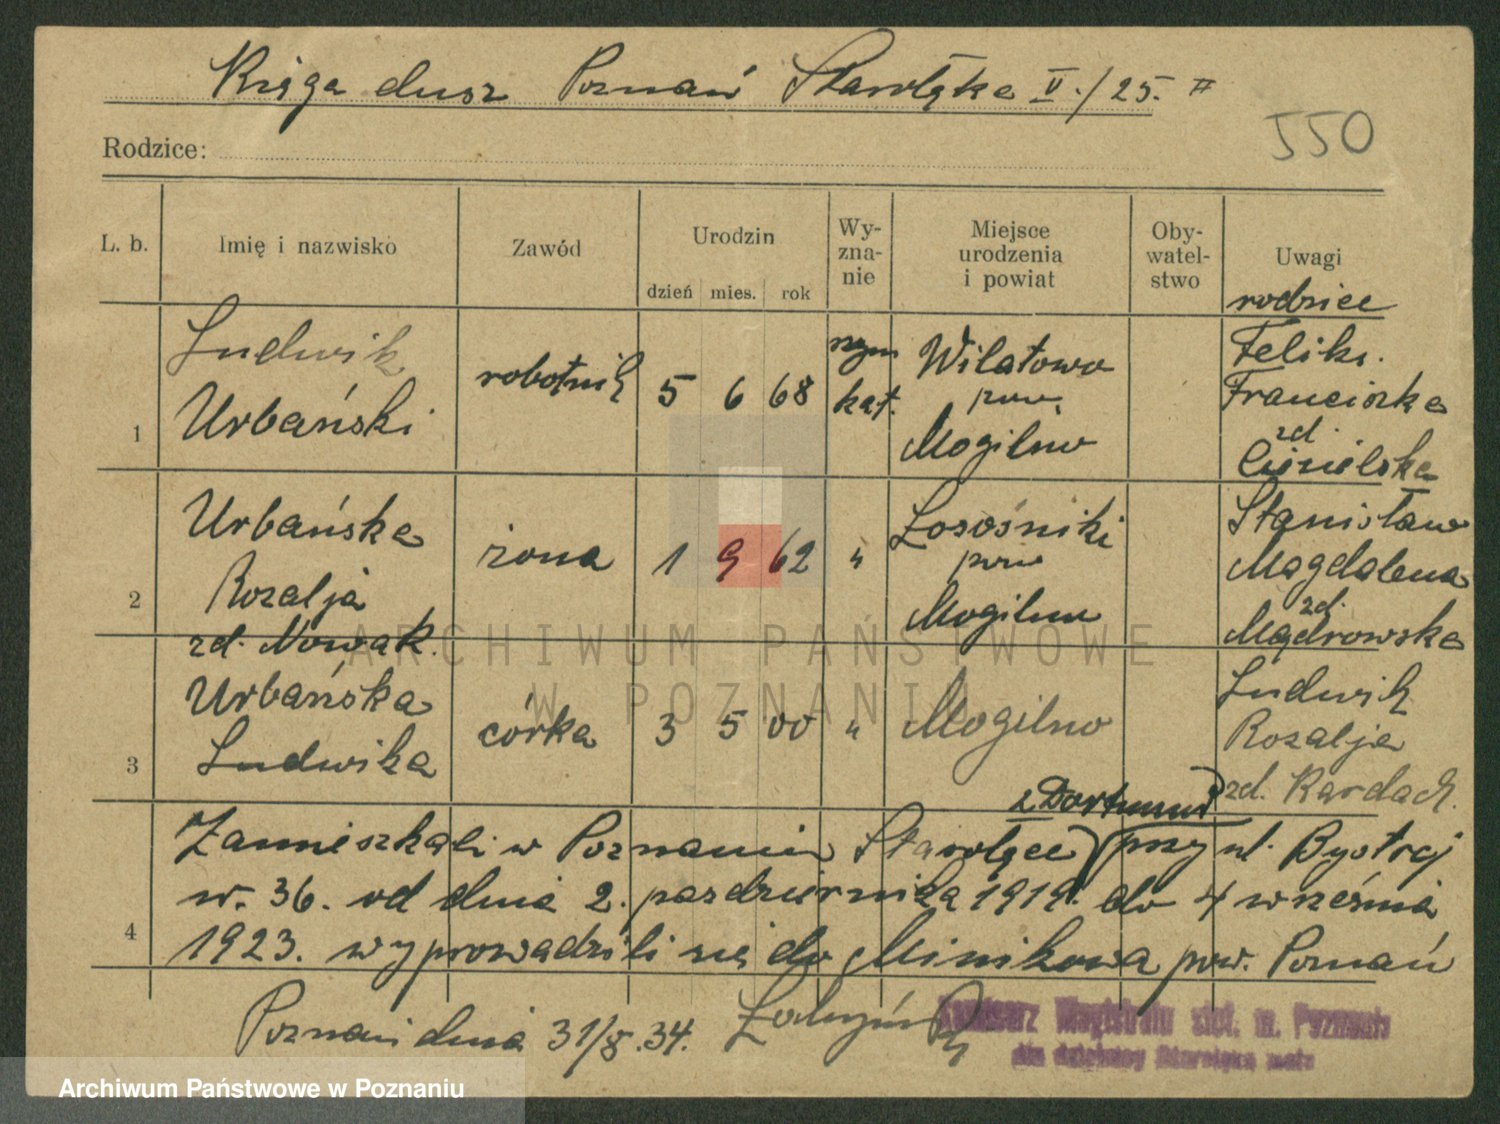 Księga dusz Poznań Starołęka V./25.
550
Rodzice:
L. b.
Imię i nazwisko
Zawód
Urodzin
dzień mies. rok
Wy-
zna-
nie
Miejsce
urodzenia
i powiat
Oby-
watel-
stwo
Uwagi
rodzice
1
Ludwik
Urbański
robotnik
5 6 68
rzym
kat.
Wilatowo
pow.
Mogilno
Feliks.
Franciszka
zd.
Ciesielska
2
Urbańska
Rozalja
zd. Nowak.
żona
1 9 62
"
Łosośniki
pow
Mogilno
Stanisław
Magdalena
zd.
Mądrowska
3
Urbańska
Ludwika
córka
3 5 00
"
Mogilno
Ludwik
Rozalja
zd. Kardach.
4
z Dortmund
Zamieszkali w Poznaniu Starołęce) przy ul. Bystrej
nr. 36. od dnia 2. pazdziernika 1919. do 4 września
1923. wyprowadzili się do Minikowa pow. Poznań
Poznań dnia 31/8.34.
Komisarz Magistratu stoł. m. Poznania
dla dzielnicy Starołęka mała
ARCHIWUM PAŃSTWOWE
W POZNANIU
Archiwum Państwowe w Poznaniu